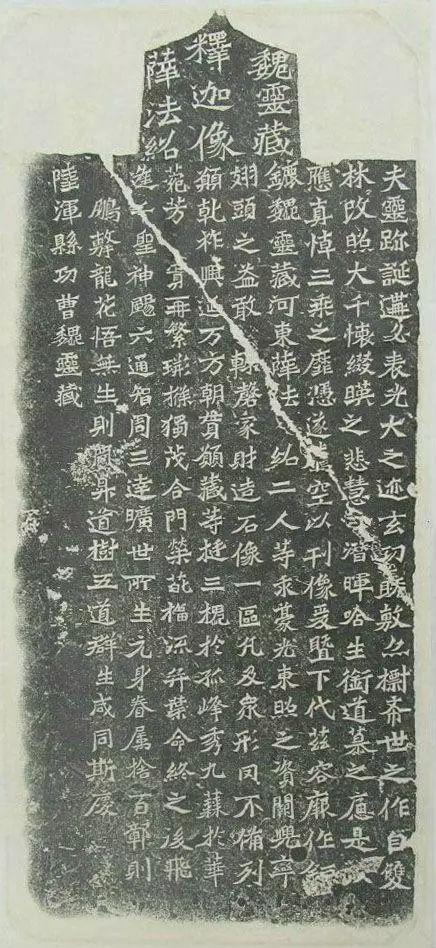 魏靈藏
釋迦像
薛法紹
夫靈跡誕遘必表光大之迹玄功既敷亦標希世之作自雙
林改照大千懷綴暎之悲慧潛暉唅生銜道慕之是
應真悼三乘之靡憑遂騰空以刊像爰暨下代茲容廓作
鏕魏靈藏河東薛法紹二人等求豪光東照之資闕兜率
翅頭之益敢輒磬家財造石像一區凡及眾形罔不備列
願乾祚興延万方朝貫願藏等挺三槐於孤峰秀九蕀於華
菀芳實再繁荊條獨茂合門榮葩福流奕葉命終之後飛
逢千聖神颺六通智周三達曠世所生元身眷屬捨百鄣則
鵬擊龍花悟無生則鳳昇道樹五道群生咸同斯慶
陸渾縣功曹魏靈藏